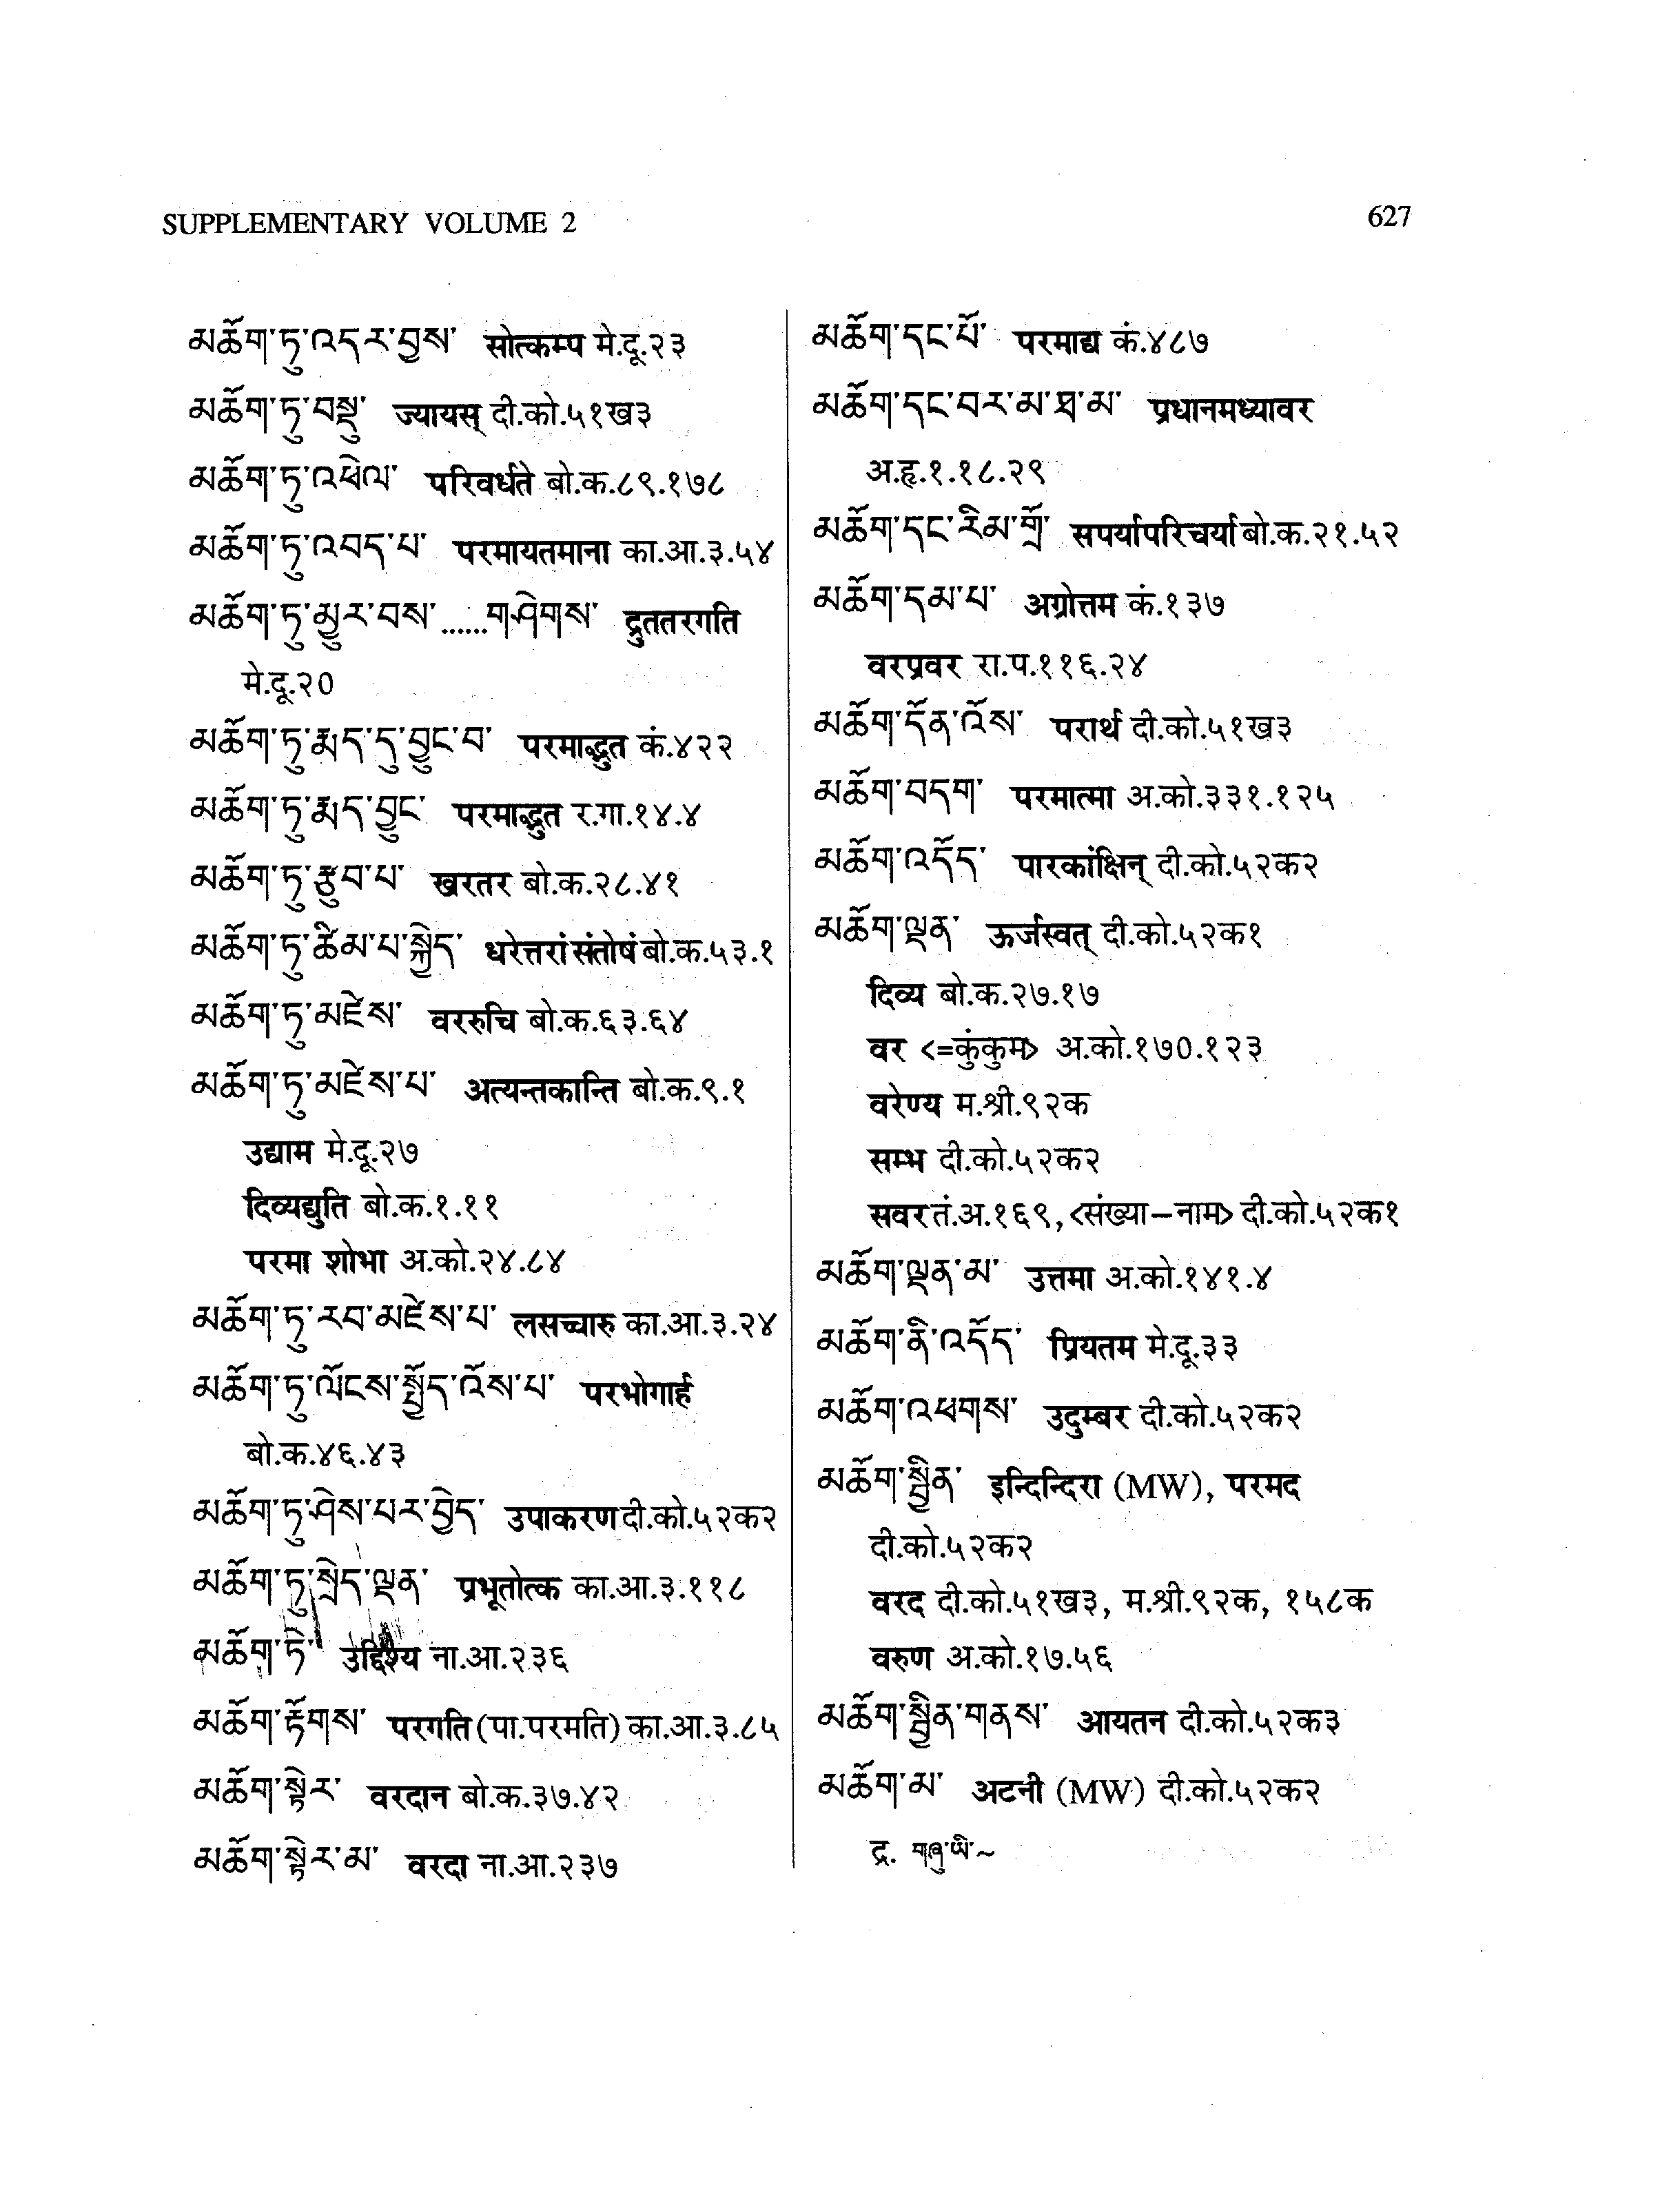 SUPPLEMENTARY VOLUME 2
627
མཆོག་ཏུ་འདར་བྱས་ सोत्कम्प मे.दू.२३
མཆོག་ཏུ་བསྡུ་ ज्यायस् दी.को.५१ख३
མཆོག་ཏུ་འཕེལ་ परिवर्धते बो.क.८९.१७८
མཆོག་ཏུ་འབད་པ་ परमायतमाना का.आ.३.५४
མཆོག་ཏུ་མྱུར་བས་......གཤེགས་ द्रुततरगति
मे.दू.२०
མཆོག་ཏུ་རྨད་དུ་བྱུང་བ་ परमाद्भुत कं.४२२
མཆོག་ཏུ་རྨད་བྱུང་ परमाद्भुत र.गा.१४.४
མཆོག་ཏུ་རྩུབ་པ་ खरतर बो.क.२८.४१
མཆོག་ཏུ་ཚིམ་པ་སྐྱེད་ धरेत्तरां संतोषं बो.क.५३.१
མཆོག་ཏུ་མཛེས་ वररुचि बो.क.६३.६४
མཆོག་ཏུ་མཛེས་པ་ अत्यन्तकान्ति बो.क.९.१
उद्याम मे.दू.२७
दिव्यद्युति बो.क.१.११
परमा शोभा अ.को.२४.८४
མཆོག་ཏུ་རབ་མཛེས་པ་ लसच्चारु का.आ.३.२४
མཆོག་ཏུ་ལོངས་སྤྱོད་འོས་པ་ परभोगार्ह
बो.क.४६.४३
མཆོག་ཏུ་ཤེས་པར་བྱེད་ उपाकरण दी.को.५२क२
མཆོག་ཏུ་སྲེད་ལྡན་ प्रभूतोत्क का.आ.३.११८
མཆོག་ཏེ་ उद्दिश्य ना.आ.२३६
མཆོག་རྟོགས་ परगति (पा.परमति) का.आ.३.८५
མཆོག་སྟེར་ वरदान बो.क.३७.४२
མཆོག་སྟེར་མ་ वरदा ना.आ.२३७
མཆོག་དང་པོ་ परमाद्य कं.४८७
མཆོག་དང་བར་མ་ཐ་མ་ प्रधानमध्यावर
अ.हृ.१.१८.२९
མཆོག་དང་རིམ་གྲོ་ सपर्यापरिचर्या बो.क.२१.५२
མཆོག་དམ་པ་ अग्रोत्तम कं.१३७
वरप्रवर रा.प.११६.२४
མཆོག་དོན་འོས་ परार्थ दी.को.५१ख३
མཆོག་བདག་ परमात्मा अ.को.३३१.१२५
མཆོག་འདོད་ पारकांक्षिन् दी.को.५२क२
མཆོག་ལྡན་ ऊर्जस्वत् दी.को.५२क१
दिव्य बो.क.२७.१७
वर <=कुंकुम> अ.को.१७०.१२३
वरेण्य म.श्री.९२क
सम्भ दी.को.५२क२
सवर तं.अ.१६९, <संख्या-नाम> दी.को.५२क१
མཆོག་ལྡན་མ་ उत्तमा अ.को.१४१.४
མཆོག་ནི་འདོད་ प्रियतम मे.दू.३३
མཆོག་འཕགས་ उदुम्बर दी.को.५२क२
མཆོག་སྦྱིན་ इन्दिन्दिरा (MW), परमद
दी.को.५२क२
वरद दी.को.५१ख३, म.श्री.९२क, १५८क
वरुण अ.को.१७.५६
མཆོག་སྦྱིན་གནས་ आयतन दी.को.५२क३
མཆོག་མ་ अटनी (MW) दी.को.५२क२
द्र. གཞུ་ཡི་~